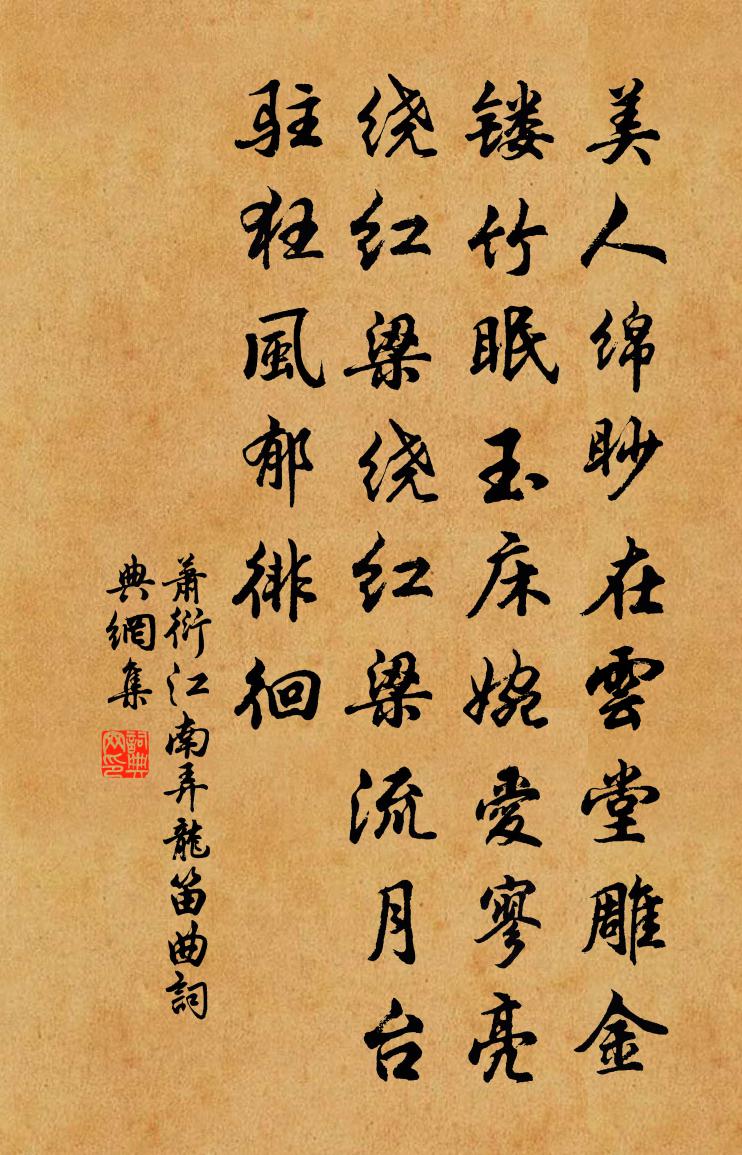 美人绵眇在雲堂雕金
镂竹眠玉床婉愛寥亮
绕红梁绕红梁流月台
駐狂風郁徘徊
萧衍江南弄龍笛曲詞
典網集
詞典網印